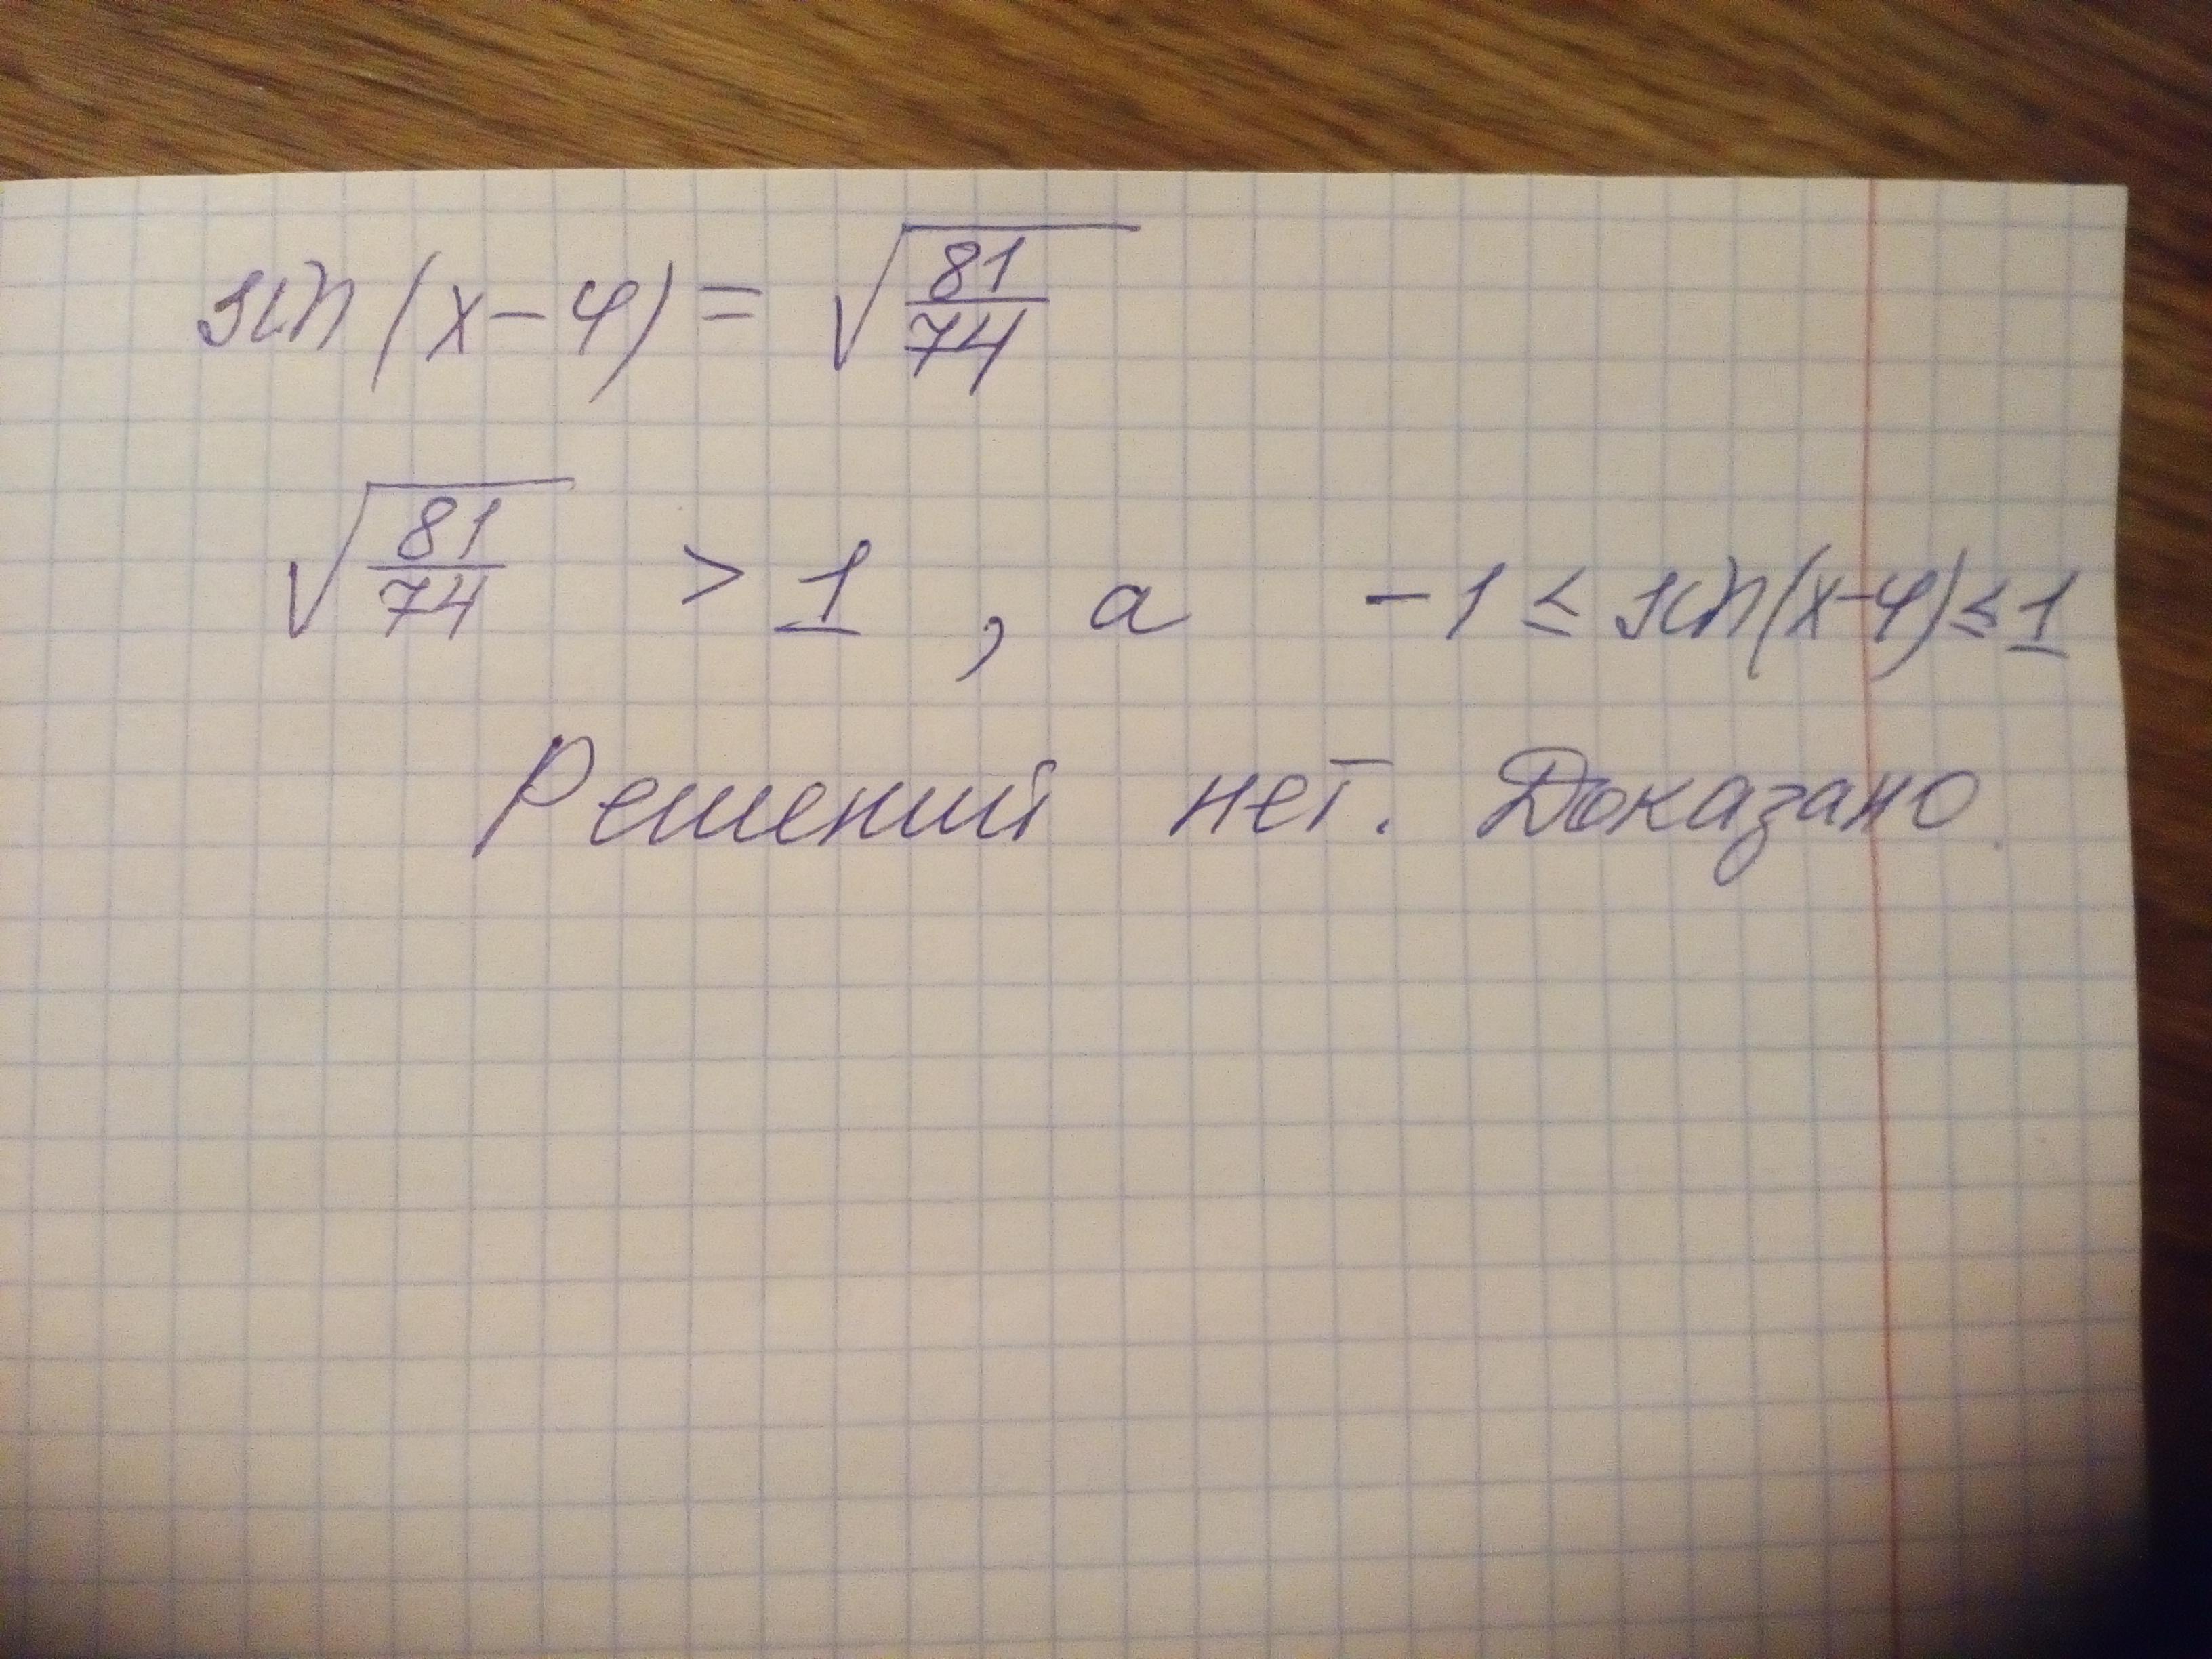 sin (x - φ) = √(81/74)
√(81/74) > 1 , а -1 ≤ sin(x-φ) ≤ 1
Решений нет. Доказано.